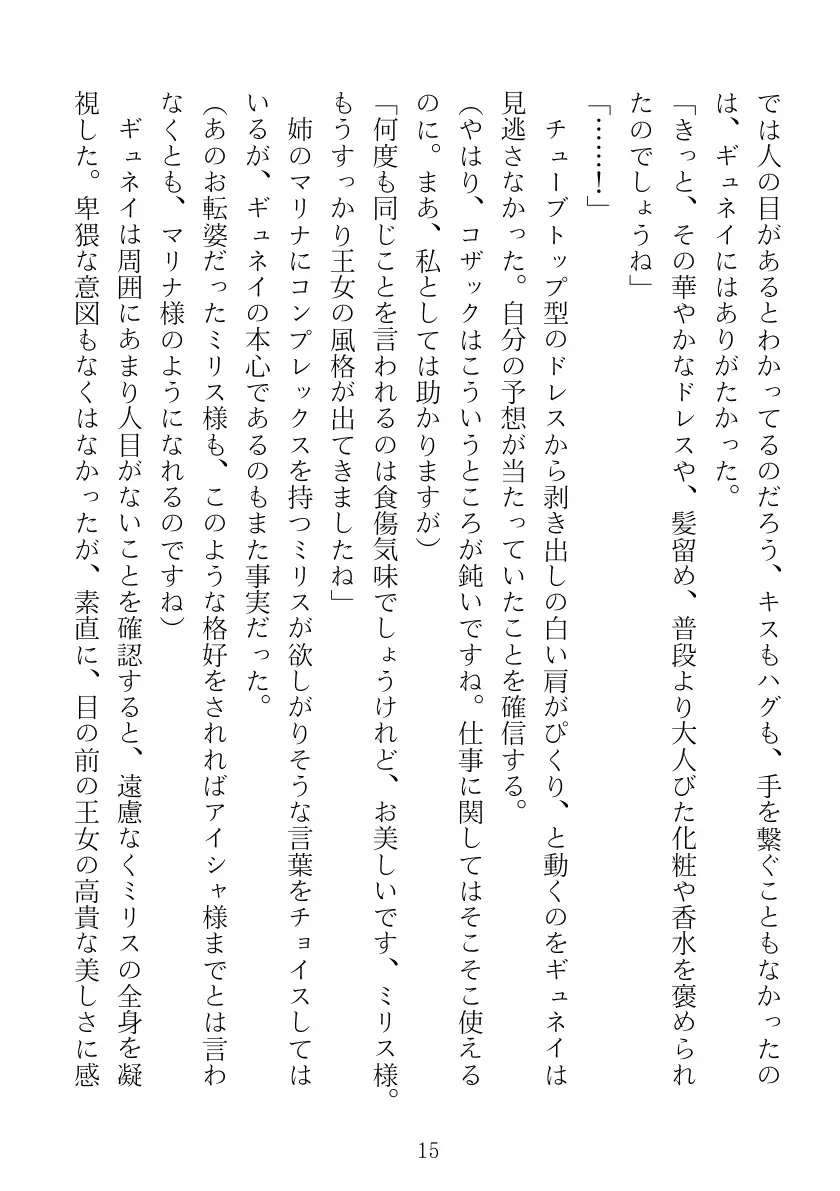 では人の目があるとわかってるのだろう、キスもハグも、手を繋ぐこともなかったの
は、ギュネイにはありがたかった。
「きっと、その華やかなドレスや、髪留め、普段より大人びた化粧や香水を褒められ
たのでしょうね」
「……！」
　チューブトップ型のドレスから剥き出しの白い肩がぴくり、と動くのをギュネイは
見逃さなかった。自分の予想が当たっていたことを確信する。
（やはり、コザックはこういうところが鈍いですね。仕事に関してはそこそこ使える
のに。まあ、私としては助かりますが）
「何度も同じことを言われるのは食傷気味でしょうけれど、お美しいです、ミリス様。
もうすっかり王女の風格が出てきましたね」
　姉のマリナにコンプレックスを持つミリスが欲しがりそうな言葉をチョイスしては
いるが、ギュネイの本心であるのもまた事実だった。
（あのお転婆だったミリス様も、このような格好をされればアイシャ様までとは言わ
なくとも、マリナ様のようになれるのですね）
　ギュネイは周囲にあまり人目がないことを確認すると、遠慮なくミリスの全身を凝
視した。卑猥な意図もなくはなかったが、素直に、目の前の王女の高貴な美しさに感
15